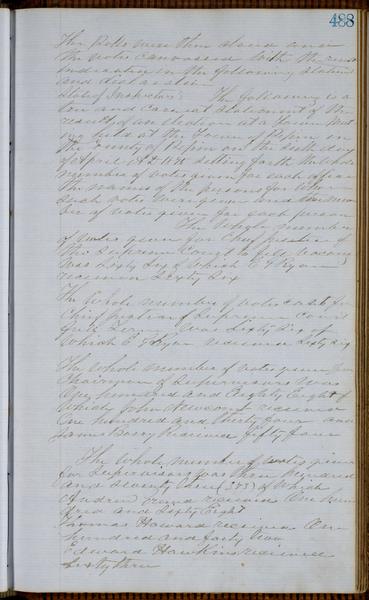 488
The Polls were then closed and
the votes canvassed with the result
indicated in the following statement
and declaration
State of Wisconsin The following is a
true and correct statement of the
result of an election at a Town Meet
ing held at the Town of Pepin in
the County of Pepin on the sixth day
of April A D 1875 setting forth the whole
number of votes given for each office
the names of the persons for whom
such votes were given and the num
ber of votes given for each person
The Whole number
of votes given for Chief Justice of
the Supreme Court to fill vacancy
was Sixty Six of which E G Ryan
received Sixty Six
The Whole number of votes cast for
Chief Justice of Supreme Court
full Term was Sixty Six of
Which E G Ryan received Sixty six
The Whole number of votes given for
Chairman of Supervisors was
One hundred and Eighty Eight of
Which John Newcomb received
One hundred and thirty four and
James Barry received fifty four
The Whole number of votes given
for Supervisors was three Hundred
and Seventy three (373) of Which
Andrew received One hun
dred and Sixty Eight
Thomas Howard received One
hundred and forty two
Edward Hawkins received
Sixty three